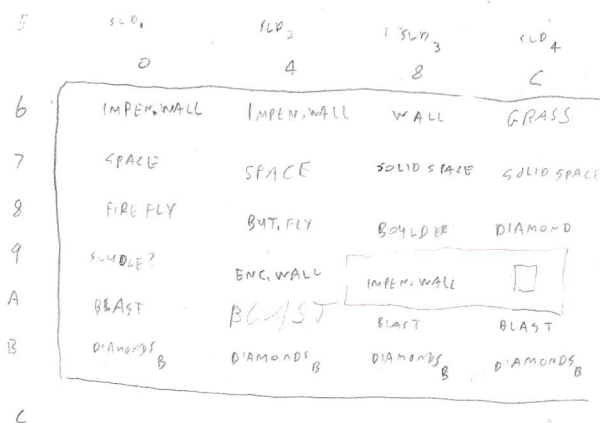 5 SLD1 SLD2 SLD3 SLD4
0 4 8 C
6 IMPEN.WALL IMPEN.WALL WALL GRASS
7 SPACE SPACE SOLID SPACE SOLID SPACE
8 FIRE FLY BUT.FLY BOULDER DIAMOND
9 ENC.WALL IMPEN.WALL
A BLAST BLAST BLAST BLAST
B DIAMONDSB DIAMONDSB DIAMONDSB DIAMONDSB
C